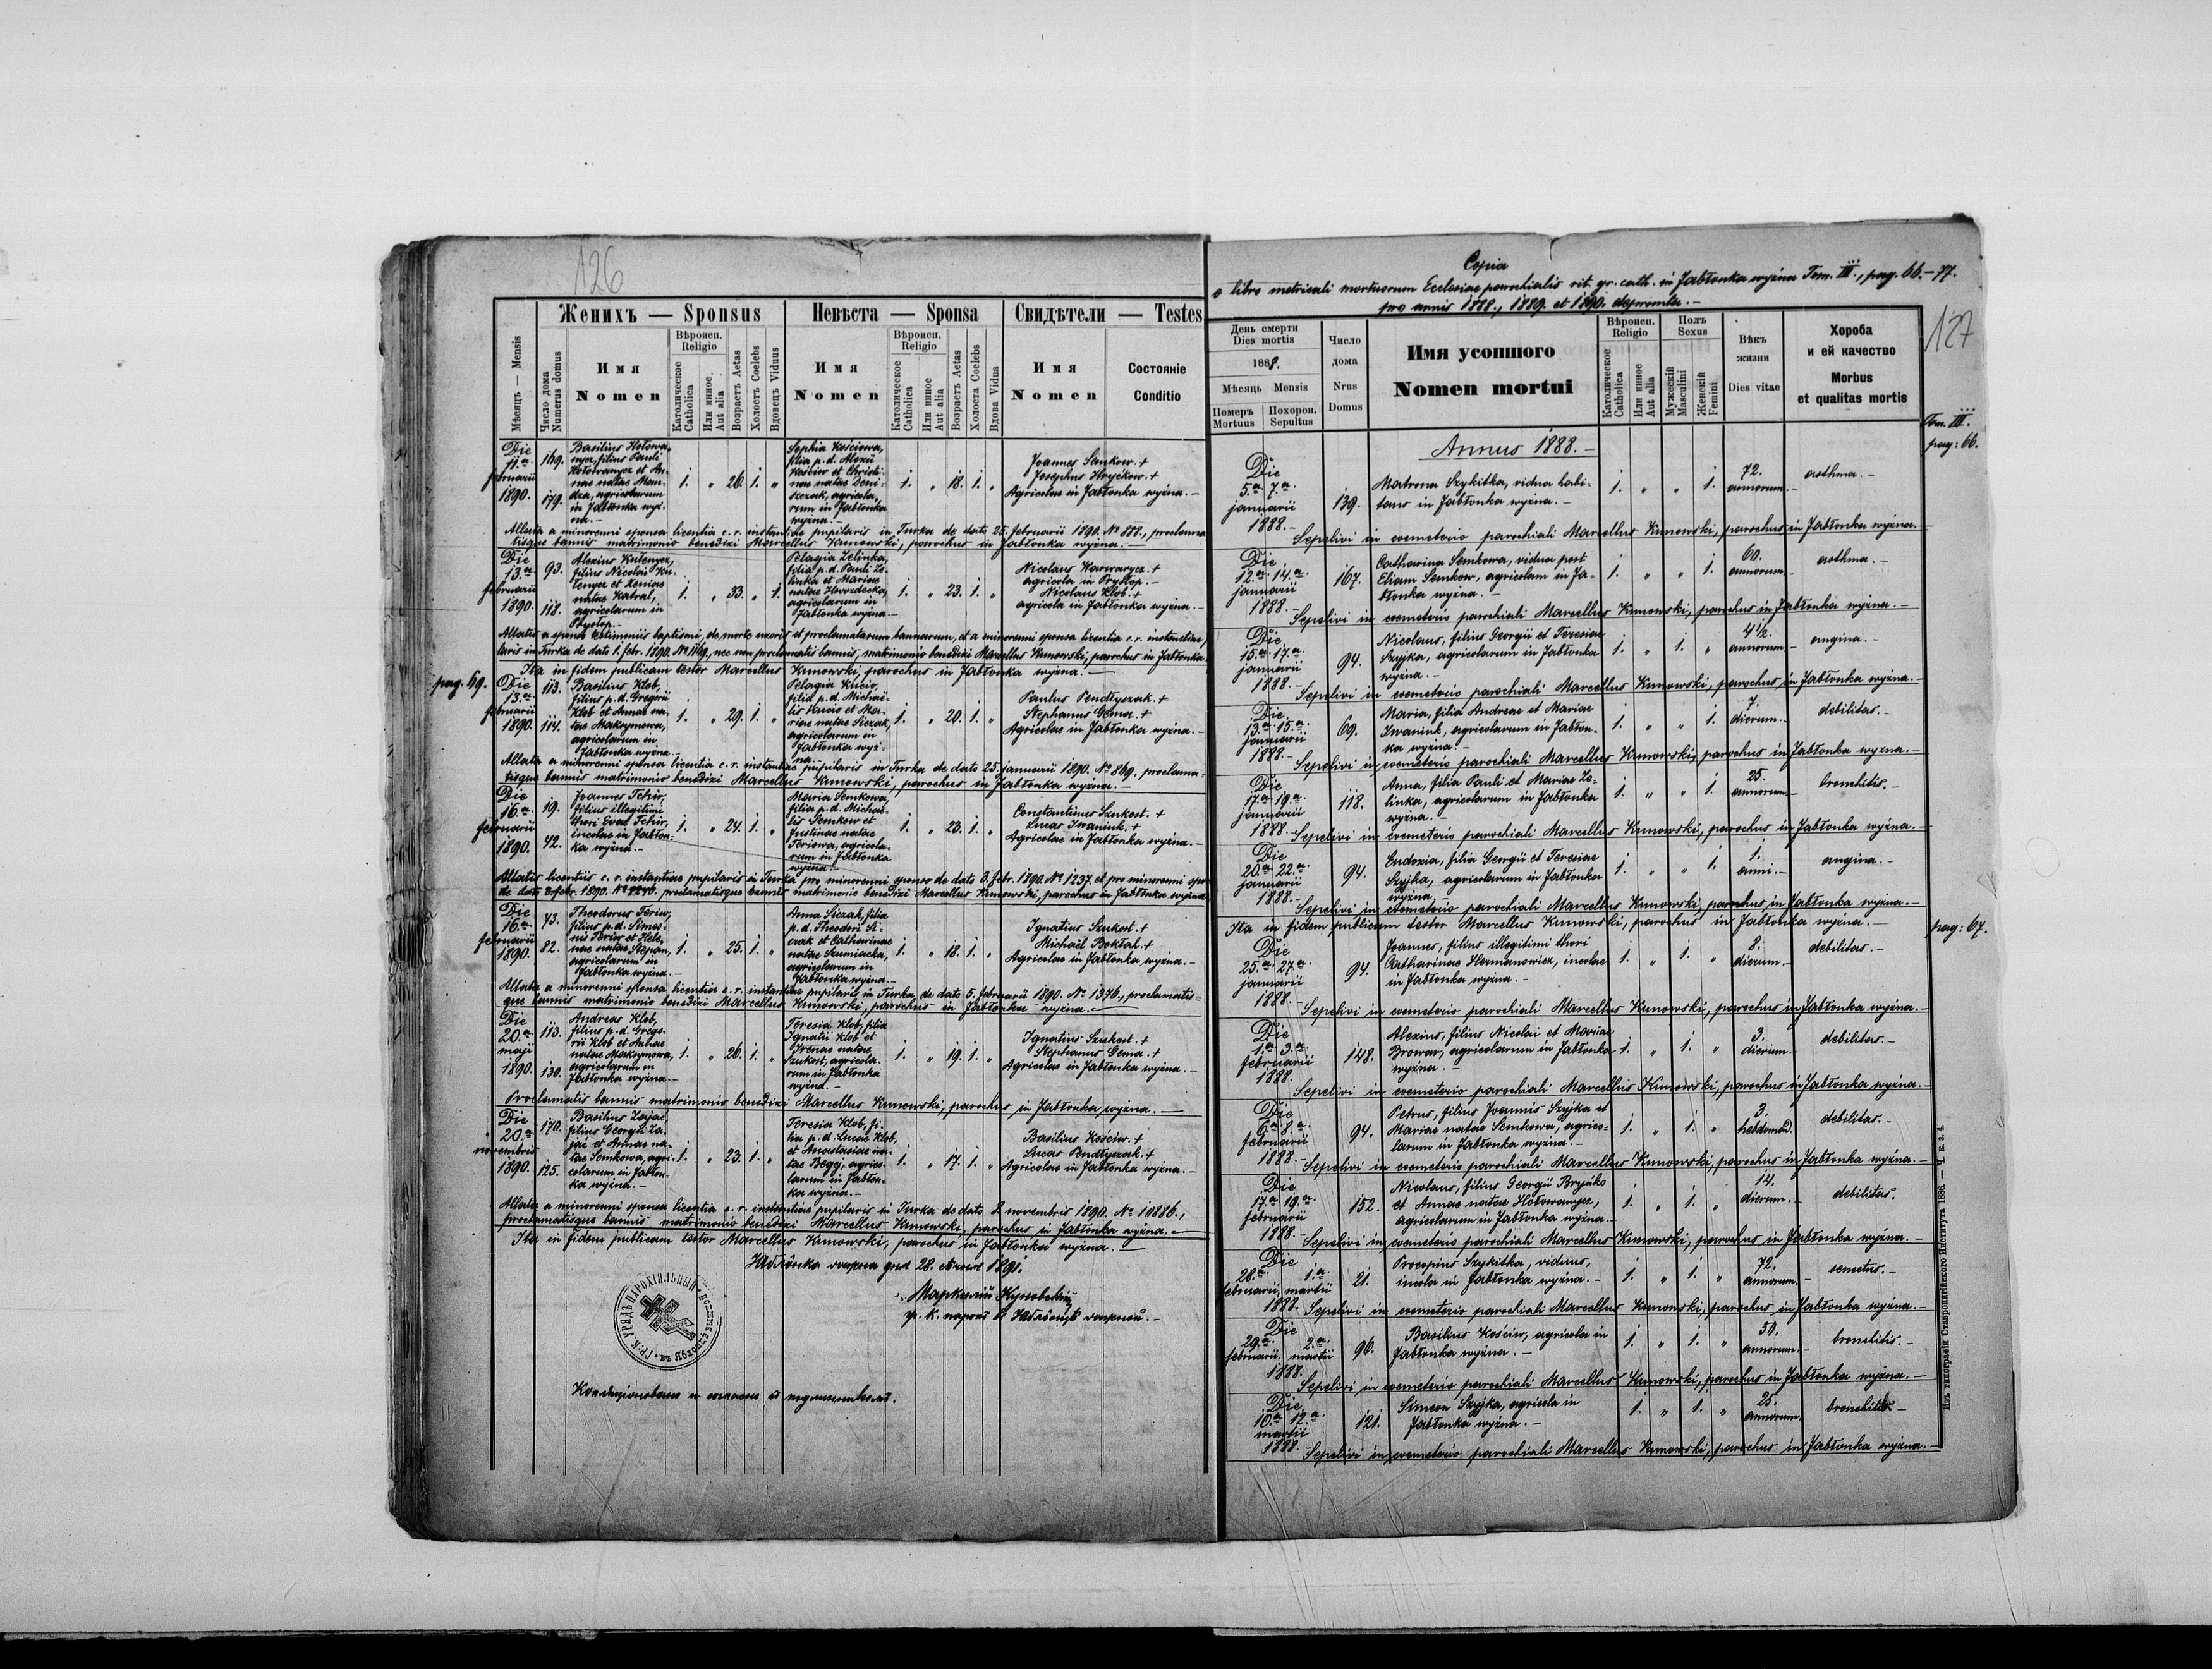 126
Женихъ — Sponsus
Невѣста — Sponsa
Свидѣтели — Testes
Мѣсяцъ — Mensis
Число дома
Numerus domus
Имя
Nomen
Вѣроисп.
Religio
Католическое
Catholica
Или инное
Aut alia
Возрастъ Aetas
Холостъ Coelebs
Вдовецъ Viduus
Имя
Nomen
Вѣроисп.
Religio
Католическое
Catholica
Или инное
Aut alia
Возрастъ Aetas
Холоста Coelebs
Вдова Vidua
Имя
Nomen
Состояніе
Conditio
Die
11.a
februarii
1890.
169.
179.
Basilius Hotowa-
nycz, filius Pauli
Hotowanycz et An-
nae natae Man-
dza, agricolarum
in Jabłonka wyż-
na.-
1. „ 26. 1. „
Sophia Kościowa,
filia p.d. Alexii
Kościow et Christi-
nae natae Deni-
szczak, agricola-
rum in Jabłonka
wyżna.-
1. „ 18. 1. „
Joannes Semkow. +
Josephus Hryćkow. +
Agricolae in Jabłonka wyżna. -
Allata a minorenni sponsa licentia c. r. instantiae pupilaris in Turka de dato 25. februarii 1890. No 888., proclama-
tisque bannis matrimonio benedixi Marcellus Kunowski, parochus in Jabłonka wyżna.-
Die
13.a
februarii
1890.
93.
118.
Alexius Kutenycz,
filius Nicolai Ku-
tenycz et Xeniae
natae Kabral,
agricolarum in
Prysłop.-
1. „ 33. „ 1.
Pelagia Zelinka,
filia p.d. Pauli Ze-
linka et Mariae
natae Hwozdecka,
agricolarum in
Jabłonka wyżna.-
1. „ 23. 1. „
Nicolaus Karwarycz. +
agricola in Prysłop. -
Nicolaus Klob. +
agricola in Jabłonka wyżna.-
Allatis a sponso testimoniis baptismi, de morte uxoris et proclamatarum bannorum, et a minorenni sponsa licentia c. r. instantiae
laris in Turka de dato 1. febr. 1890. No 1169., nec non proclamatis bannis, matrimonio benedixi Marcellus Kunowski, parochus in Jabłonka
Ita in fidem publicam testor Marcellus Kunowski, parochus in Jabłonka wyżna.-
pag. 69.
Die
13.a
februarii
1890.
113.
114.
Basilius Klob,
filius p.d. Gregorii
Klob et Annae na-
tae Maksymowa,
agricolarum in
Jabłonka wyżna.-
1. „ 29. 1. „
Pelagia Kucio,
filia p.d. Michaë-
lis Kucio et Ma-
riae natae Siczak,
agricolarum in
Jabłonka wyż-
na.-
1. „ 20. 1. „
Paulus Pendłyszak. +
Stephanus Gema. +
Agricolae in Jabłonka wyżna. -
Allata a minorenni sponsa licentia c. r. instantiae pupilaris in Turka de dato 25. januarii 1890. No 869. proclama-
tisque bannis matrimonio benedixi Marcellus Kunowski, parochus in Jabłonka wyżna.-
Die
16.a
februarii
1890.
19.
42.
Joannes Tchir,
filius illegitimi
thori Evae Tchir,
incolae in Jabłon-
ka wyżna.-
1. „ 24. 1. „
Maria Semkowa,
filia p.d. Michaë-
lis Semkow et
Justinae natae
Feriowa, agricola-
rum in Jabłonka
wyżna.-
1. „ 23. 1. „
Constantinus Szukost. +
Lucas Iwaniuk. +
Agricolae in Jabłonka wyżna. -
Allatis licentiis c. r. instantiae pupilaris in Turka pro minorenni sponso de dato 3. febr. 1890. No 1237. et pro minorenni spon
de dato 3. febr. 1890. No 2240. proclamatisque bannis matrimonio benedixi Marcellus Kunowski, parochus in Jabłonka wyżna
Die
16.a
februarii
1890.
73.
82.
Theodorus Feriow,
filius p.d. Simeo-
nis Feriow et Hele-
nae natae Stepan,
agricolarum in
Jabłonka wyżna.-
1. „ 25. 1. „
Anna Siczak, filia
p.d. Theodori Si-
czak et Catharinae
natae Szumiacka,
agricolarum in
Jabłonka wyżna.-
1. „ 18. 1. „
Ignatius Szukost. +
Michaël Boktał. +
Agricolae in Jabłonka wyżna. -
Allata a minorenni sponsa licentia c. r. instantiae pupilaris in Turka de dato 5. februarii 1890. No 1376., proclamatis-
que bannis matrimonio benedixi Marcellus Kunowski, parochus in Jabłonka wyżna.-
Die
20.a
maji
1890.
113.
130.
Andreas Klob,
filius p.d. Grego-
rii Klob et Annae
natae Maksymowa,
agricolarum in
Jabłonka wyżna.-
1. „ 26. 1. „
Teresia Klob, filia
Ignatii Klob et
Irenae natae
Szukost, agricola-
rum in Jabłonka
wyżna.-
1. „ 19. 1. „
Ignatius Szukost. +
Stephanus Gema. +
Agricolae in Jabłonka wyżna. -
Proclamatis bannis matrimonio benedixi Marcellus Kunowski, parochus in Jabłonka wyżna.-
Die
20.a
novembris
1890.
170.
125.
Basilius Zajac,
filius Georgii Za-
jac et Annae na-
tae Semkowa, agri-
colarum in Jabłon-
ka wyżna.-
1. „ 23. 1. „
Teresia Klob, fi-
lia p.d. Lucae Klob,
et Anastasiae na-
tae Begej, agrico-
larum in Jabłon-
ka wyżna.-
1. „ 17. 1. „
Basilius Kościw. +
Lucas Pendłyszak. +
Agricolae in Jabłonka wyżna. -
Allata a minorenni sponsa licentia c. r. instantiae pupilaris in Turka de dato 2. novembris 1890. No 10886.,
proclamatisque bannis matrimonio benedixi Marcellus Kunowski, parochus in Jabłonka wyżna.-
Ita in fidem publicam testor Marcellus Kunowski, parochus in Jabłonka wyżna.-
28. 1891.
ГР.-К. УРЯДЪ ПАРОХІЯЛЬНЫЙ
127
Copia
e libro metricali mortuorum Ecclesiae parochialis rit. gr. cath. in Jabłonka wyżna Tom. III., pag. 66.-77.
pro annis 1888., 1889. et 1890. depromta.-
День смерти
Dies mortis
1888.
Мѣсяцъ Mensis
Померъ
Mortuus
Похорон.
Sepultus
Число
дома
Nrus
Domus
Имя усопшого
Nomen mortui
Вѣроисп.
Religio
Католическое
Catholica
Или инное
Aut alia
Полъ
Sexus
Мужескій
Masculini
Женскій
Femini
Вѣкъ
жизни
Dies vitae
Хороба
и ей качество
Morbus
et qualitas mortis
Tom. III.
pag: 66.
Annus 1888.-
Die
5.a 7.a
januarii
1888.-
139.
Matrona Szykitka, vidua habi-
tans in Jabłonka wyżna.-
1. „ „ 1.
72.
annorum.-
asthma.-
Sepelivi in coemeterio parochiali Marcellus Kunowski, parochus in Jabłonka wyżna.-
Die
12.a 14.a
januarii
1888.-
167.
Catharina Semkowa, vidua post
Eliam Semkow, agricolam in Ja-
błonka wyżna.-
1. „ „ 1.
60.
annorum.-
asthma.-
Sepelivi in coemeterio parochiali Marcellus Kunowski, parochus in Jabłonka wyżna.-
Die
15.a 17.a
januarii
1888.-
94.
Nicolaus, filius Georgii et Teresiae
Szyjka, agricolarum in Jabłonka
wyżna.-
1. „ 1. „
4 1/2.
annorum.-
angina.-
Sepelivi in coemeterio parochiali Marcellus Kunowski, parochus in Jabłonka wyżna.-
Die
13.a 15.a
januarii
1888.-
69.
Maria, filia Andreae et Mariae
Iwaniuk, agricolarum in Jabłon-
ka wyżna.-
1. „ „ 1.
7.
dierum.-
debilitas.-
Sepelivi in coemeterio parochiali Marcellus Kunowski, parochus in Jabłonka wyżna.-
Die
17.a 19.a
januarii
1888.-
118.
Anna, filia Pauli et Mariae Ze-
linka, agricolarum in Jabłonka
wyżna.-
1. „ „ 1.
25.
annorum.-
bronchitis.-
Sepelivi in coemeterio parochiali Marcellus Kunowski, parochus in Jabłonka wyżna.-
Die
20.a 22.a
januarii
1888.-
94.
Eudoxia, filia Georgii et Teresiae
Szyjka, agricolarum in Jabłonka
wyżna.-
1. „ „ 1.
1.
anni.-
angina.-
Sepelivi in coemeterio parochiali Marcellus Kunowski, parochus in Jabłonka wyżna.-
Ita in fidem publicam testor Marcellus Kunowski, parochus in Jabłonka wyżna.-
pag: 67.
Die
25.a 27.a
januarii
1888.-
94.
Joannes, filius illegitimi thori
Catharinae Hermanowicz, incolae
in Jabłonka wyżna.-
1. „ 1. „
8.
dierum.-
debilitas.-
Sepelivi in coemeterio parochiali Marcellus Kunowski, parochus in Jabłonka wyżna.-
Die
1.a 3.a
februarii
1888.
148.
Alexius, filius Nicolai et Mariae
Browar, agricolarum in Jabłonka
wyżna.-
1. „ 1. „
3.
dierum.-
debilitas.-
Sepelivi in coemeterio parochiali Marcellus Kunowski, parochus in Jabłonka wyżna.-
Die
6.a 8.a
februarii
1888.-
94.
Petrus, filius Joannis Szyjka et
Mariae natae Semkowa, agrico-
larum in Jabłonka wyżna.-
1. „ 1. „
3.
hebdomad.
debilitas.-
Sepelivi in coemeterio parochiali Marcellus Kunowski, parochus in Jabłonka wyżna.-
Die
17.a 19.a
februarii
1888.-
152.
Nicolaus, filius Georgii Bryńko
et Annae natae Hotowanycz,
agricolarum in Jabłonka wyżna.-
1. „ 1. „
14.
dierum.-
debilitas.
Sepelivi in coemeterio parochiali Marcellus Kunowski, parochus in Jabłonka wyżna.-
Die
28.a 1.a
februarii martii
1888.
21.
Procopius Szykitka, viduus,
incola in Jabłonka wyżna.-
1. „ 1. „
72.
annorum.-
senectus.-
Sepelivi in coemeterio parochiali Marcellus Kunowski, parochus in Jabłonka wyżna.-
Die
29.a 2.a
februarii martii
1888.
96.
Basilius Kościw, agricola in
Jabłonka wyżna.-
1. „ 1. „
50.
annorum.-
bronchitis.-
Sepelivi in coemeterio parochiali Marcellus Kunowski, parochus in Jabłonka wyżna.-
Die
10.a 12.a
martii
1888.
121.
Simeon Szyjka, agricola in
Jabłonka wyżna.-
1. „ 1. „
25.
annorum.
bronchitis-
Sepelivi in coemeterio parochiali Marcellus Kunowski, parochus in Jabłonka wyżna.-
Изъ типографіи Ставропигійского Института 1886. — Ч. к. з. 4.